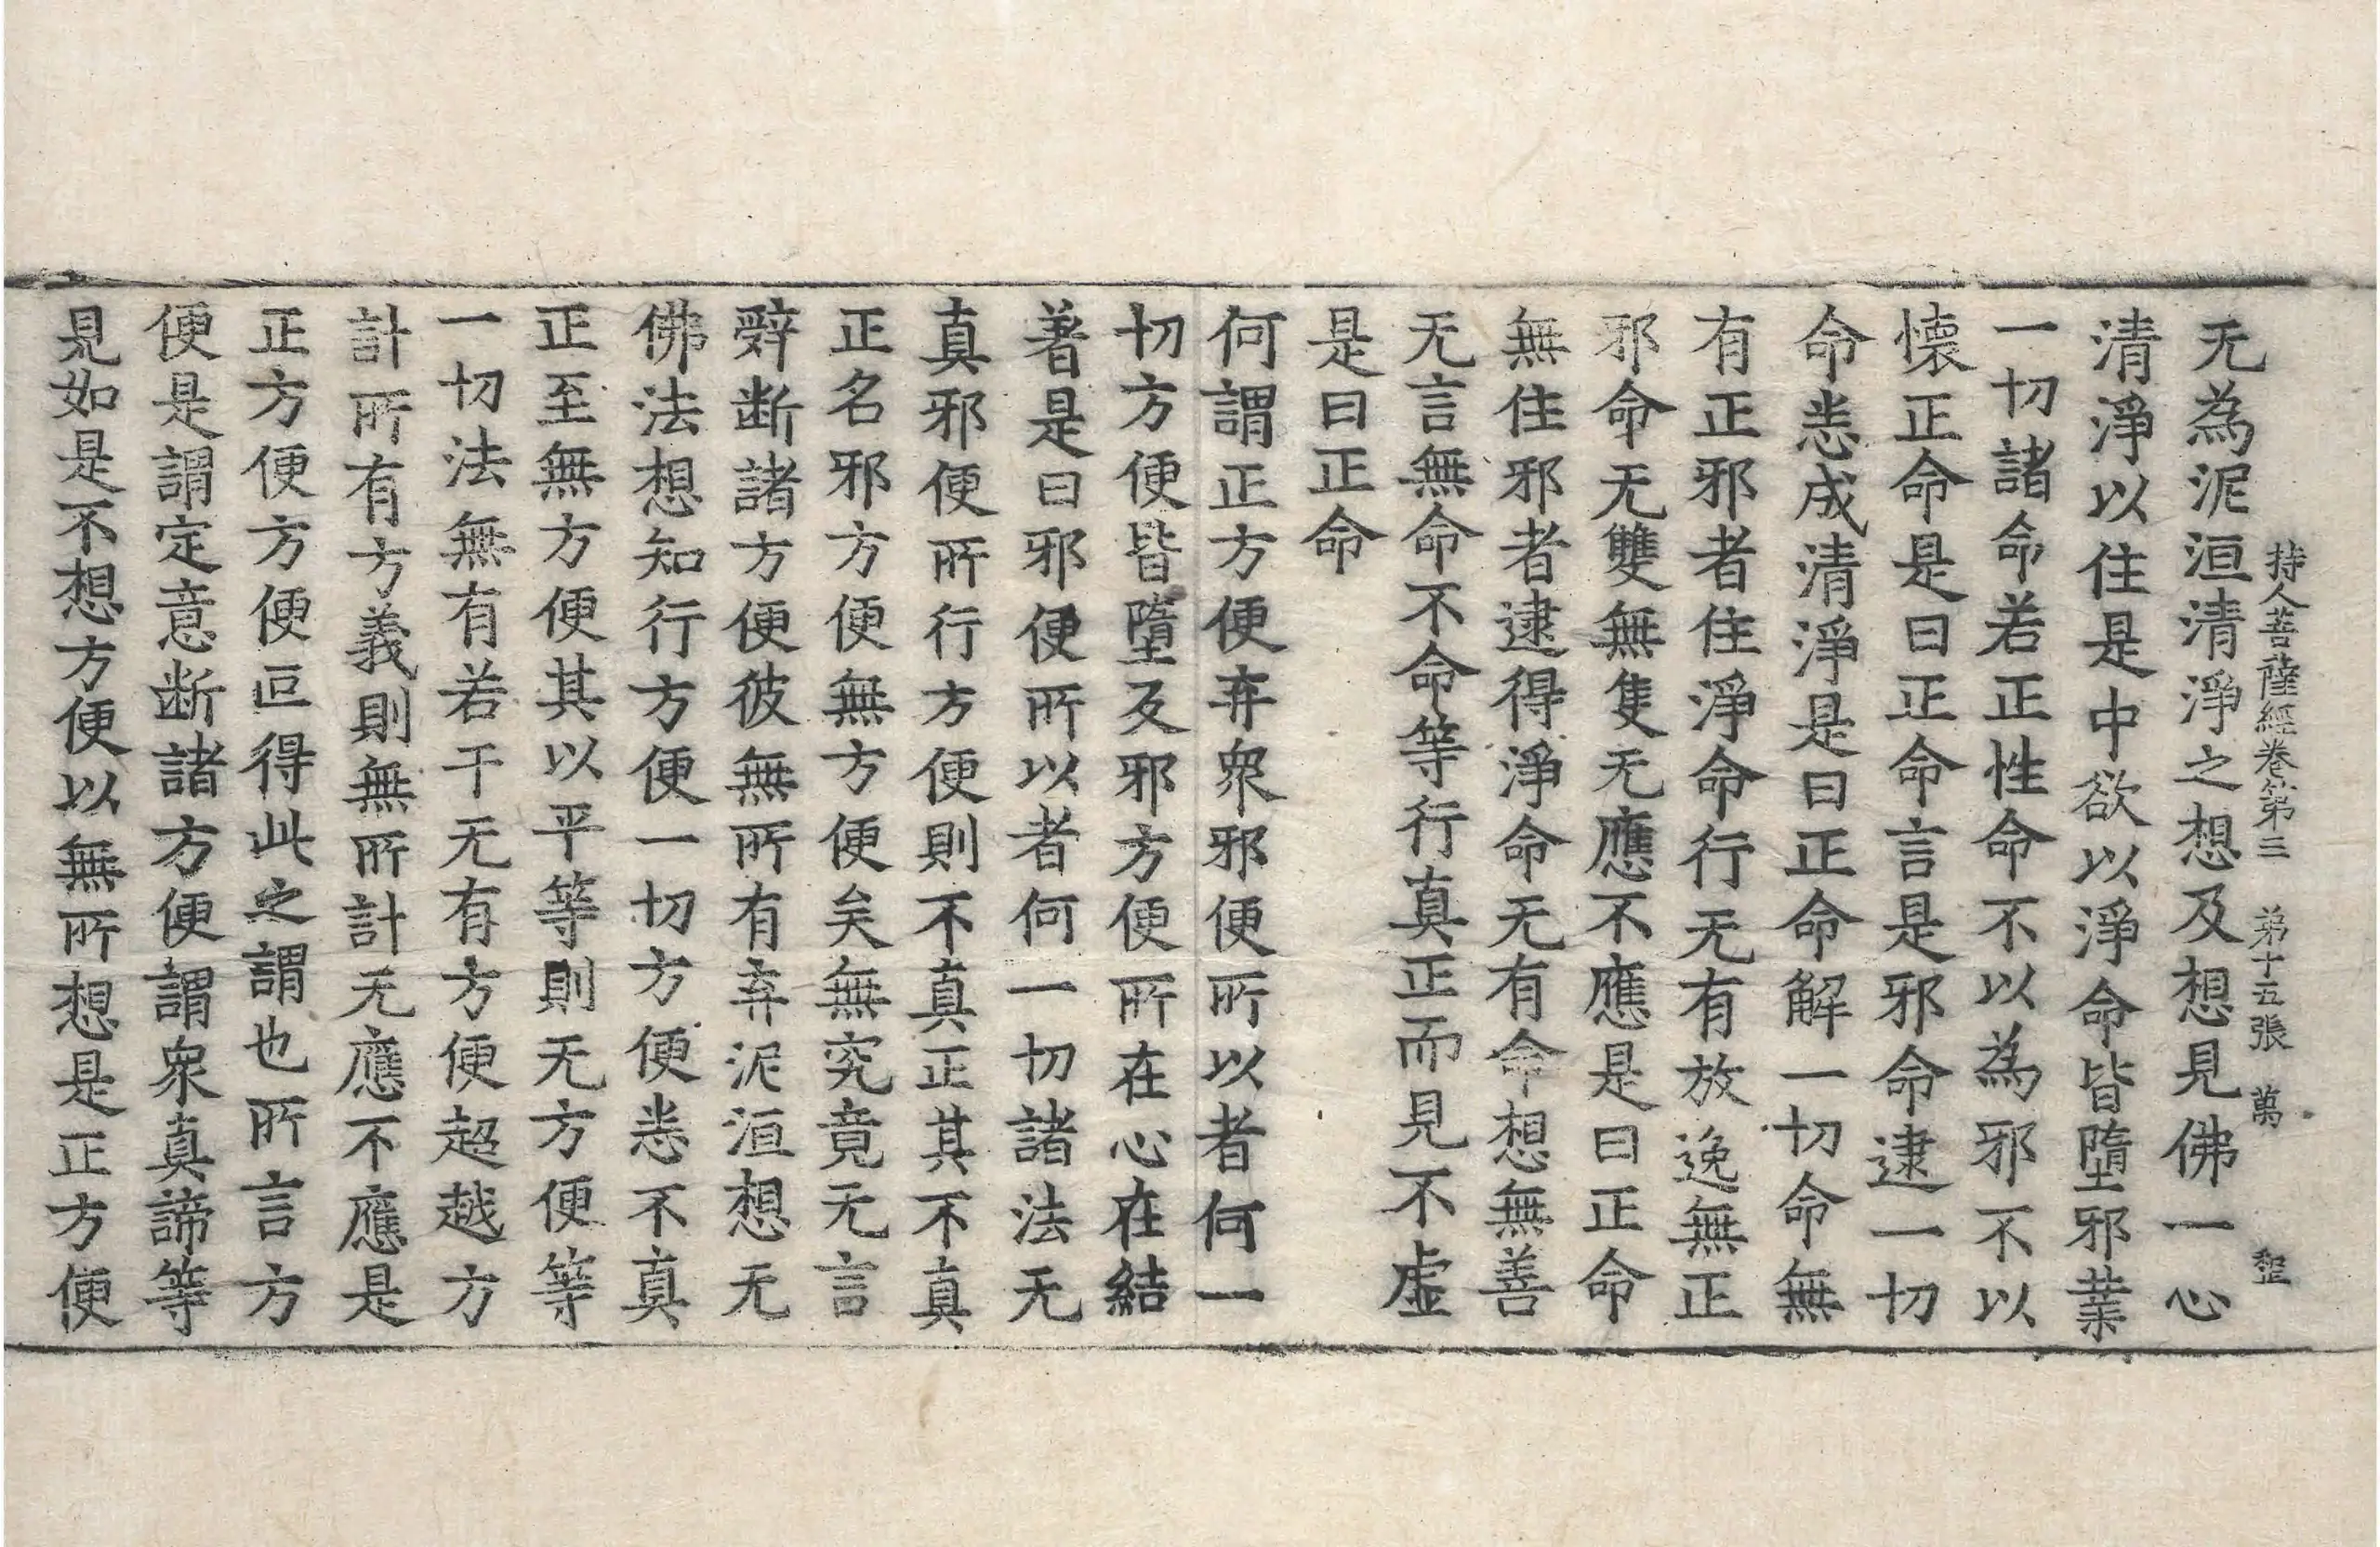 持人菩薩經卷第三 第十五張 萬
无為泥洹清淨之想及想見佛一心
清淨以住是中欲以淨命皆墮邪業
一切諸命若正性命不以為邪不以
懷正命是曰正命言是邪命逮一切
命悉成清淨是曰正命解一切命無
有正邪者住淨命行无有放逸無正
邪命无雙無隻无應不應是曰正命
無住邪者逮得淨命无有命想無善
无言無命不命等行真正而見不虛
是曰正命
何謂正方便弃眾邪便所以者何一
切方便皆墮及邪方便所在心在結
著是曰邪便所以者何一切諸法无
真邪便所行方便則不真正其不真
正名邪方便無方便矣無究竟无言
辤断諸方便彼無所有弃泥洹想无
佛法想知行方便一切方便悉不真
正至無方便其以平等則无方便等
一切法無有若干无有方便超越方
計所有方義則無所計无應不應是
正方便方便叵得此之謂也所言方
便是謂定意断諸方便謂眾真諦等
見如是不想方便以無所想是正方便